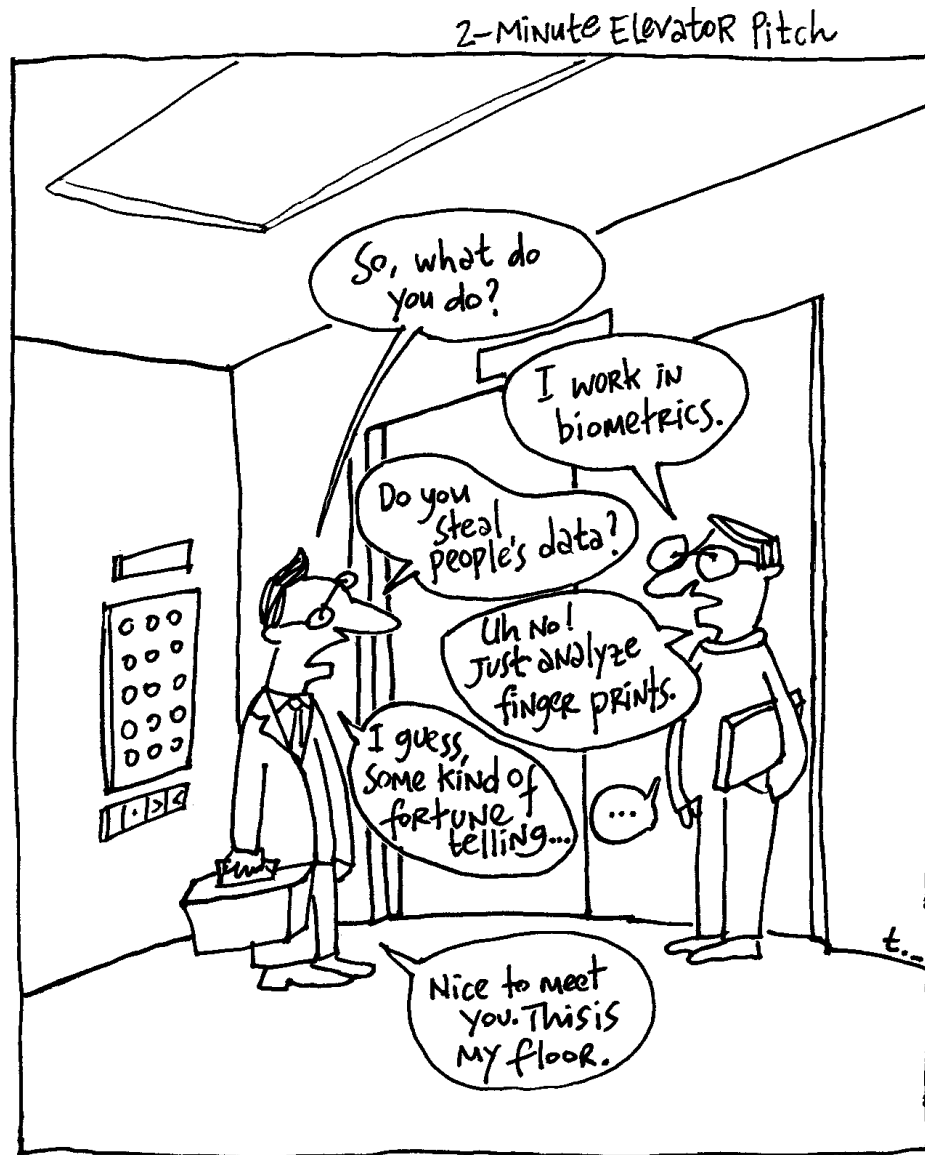 2-Minute Elevator Pitch
So, what do
you do?
I work in
biometrics.
Do you
steal
people's data?
Uh No!
Just analyze
finger prints.
I guess,
some kind of
fortune
telling...
...
Nice to meet
you. This is
my floor.
t...